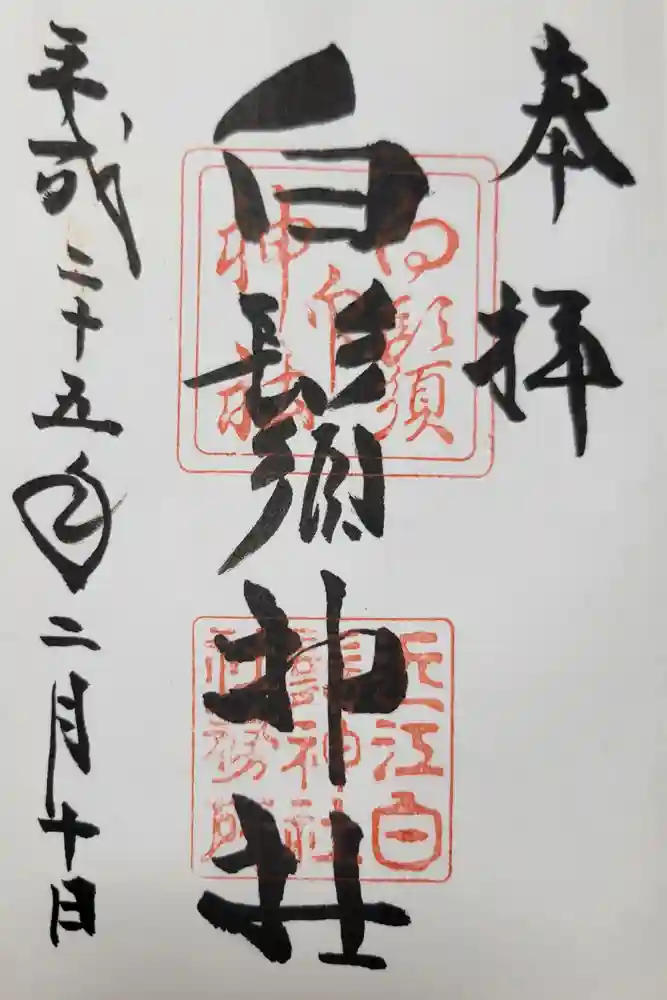 奉拝
白鬚神社
平成二十五年二月十日
白鬚須
印
神社
近江白
鬚神社
社務所